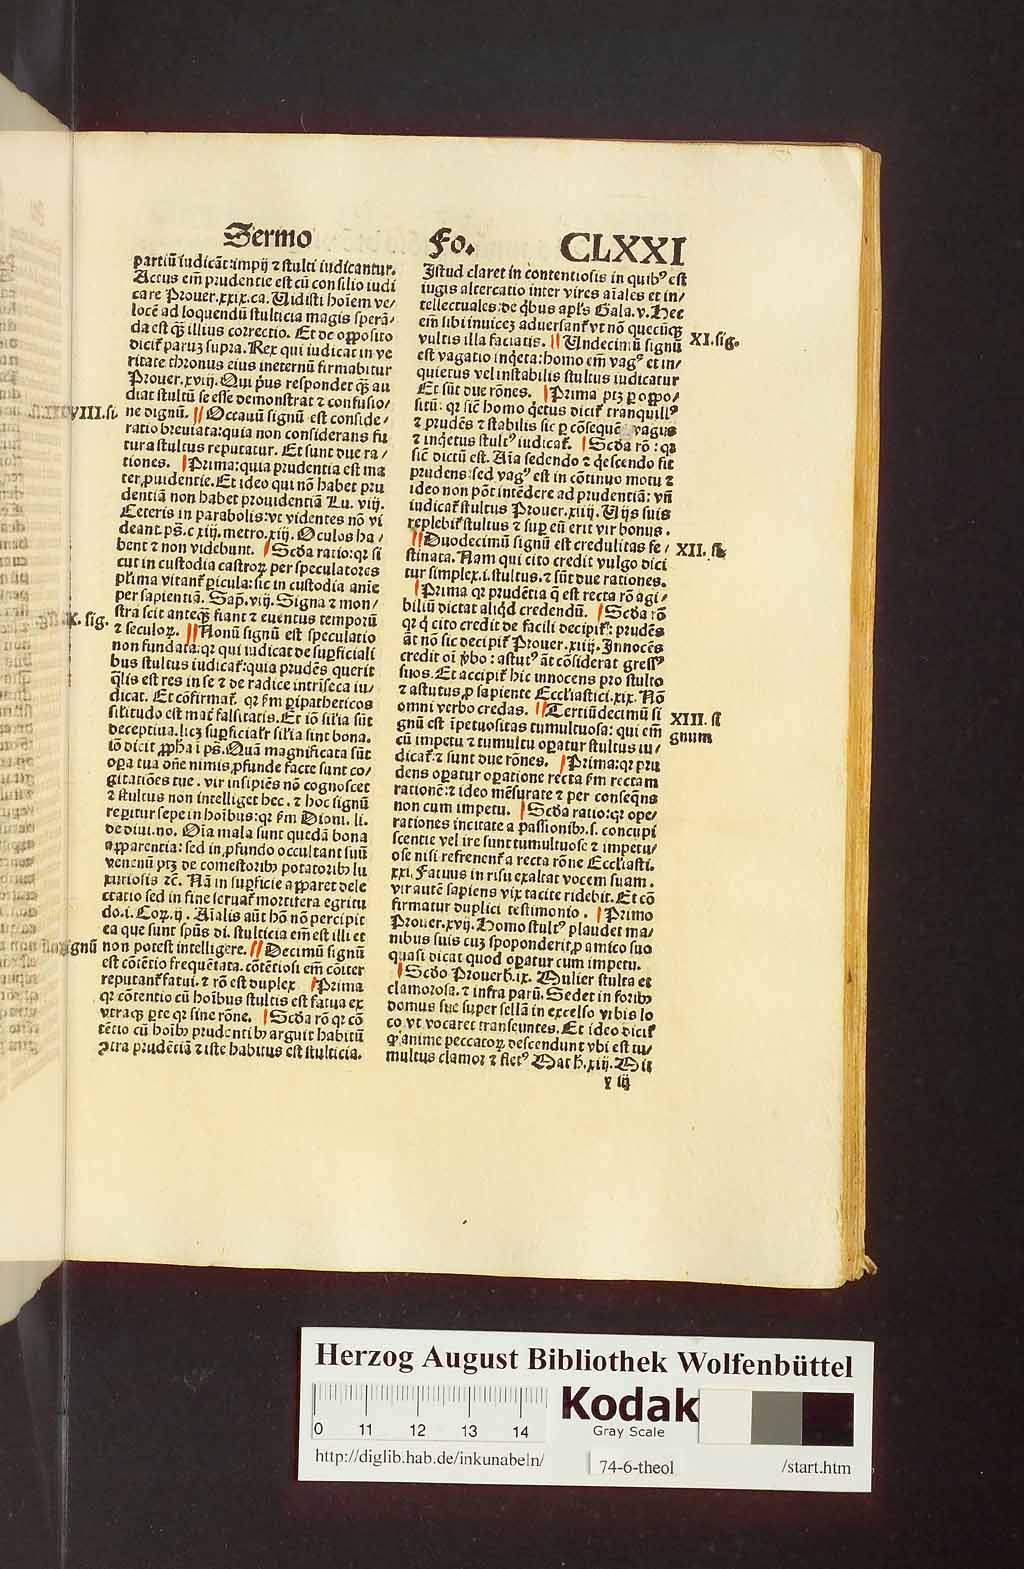 Sermo Fo. CLXXI
partiū iudicāt: impij ⁊ stulti iudicantur.
Actus em̄ prudentie est cū consilio iudi
care Prouer.xxix.ca. Uidisti hoīem ve/
locē ad loquendū stulticia magis sperā/
da est qȝ illius correctio. Et de opposito
dicit̄ paruȝ supra. Rex qui iudicat in ve
ritate thronus eius ineternū firmabitur
Prouer.xviij. Qui p̄us respondet qȝ au
diat stultū se esse demonstrat ⁊ confusio/
ne dignū. Octauū signū est conside/
VIII. si
ratio breuiata: quia non considerans fu
tura stultus reputatur. Et sunt due ra/
tiones. Prima: quia prudentia est ma
ter ꝓuidentie. Et ideo qui nō habet pru
dentiā non habet prouidentiā Lu. viij.
Ceteris in parabolis: vt videntes nō vi
deant. ps̄. c xiij. metro. xij. Oculos ha/
bent ⁊ non videbunt. Scd̄a ratio: qꝛ si
cut in custodia castroꝝ per speculatores
pl̄ima vitant̄ ꝑicula: sic in custodia anīe
per sapientiā. Sap̄. viij. Signa ⁊ mon/
stra scit anteqȝ fiant ⁊ euentus temporū
⁊ seculoꝝ. Nonū signū est speculatio
IX. sig.
non fundata: qꝛ qui iudicat de suꝑficiali
bus stultus iudicat̄: quia prudēs querit
q̄lis est res in se ⁊ de radice intrīseca iu/
dicat. Et cōfirmat̄. qꝛ s̄m ꝑipatheticos
sil̄itudo est mat̄ falsitatis. Et iō sil̄ia sūt
deceptiua. licȝ suꝑficialr̄ sil̄ia sint bona.
iō dicit ꝓph̄a i ps̄. Quā magnificata sūt
oꝑa tua dn̄e nimis ꝓfunde facte sunt co/
gitatiōes tue. vir insipiēs nō cognoscet
⁊ stultus non intelliget hec. ⁊ hoc signū
reꝑitur sepe in hoībus: qꝛ s̄m Dioni. li.
de diui. no. Oīa mala sunt quedā bona
apparentia: sed in ꝓfundo occultant suū
venenū ptȝ de comestoribȝ potatoribȝ lu
xuriosis ⁊c̄. Nā in suꝑficie apparet dele
ctatio sed in fine seruat̄ mortifera egritu
do. i. Coꝝ. ij. Aīalis aūt hō nō percipit
ea que sunt spūs di. stulticia em̄ est illi et
non potest intelligere. Decimū signū
gnū
est cōtētio frequētata. cōtētiosi em̄ cōiter
reputant̄ fatui. ⁊ rō est duplex Prima
qꝛ cōtentio cū hoībus stultis est fatua ex
vtraqȝ ꝑte qꝛ sine rōne. Scd̄a rō qꝛ cō
tētio cū hoībȝ prudentibȝ arguit habitū
ꝯtra prudētiā ⁊ iste habitus est stulticia.
Istud claret in contentiosis in quibꝰ est
iugis altercatio inter vires aīales et in/
tellectuales: de q̇bus apl̄s Gala. v. Hec
em̄ sibi inuiceȝ aduersant̄ vt nō quecūqȝ
vultis illa faciatis. Undecimū signū
XI. sig.
est vagatio inq̇eta: homo em̄ vagꝰ et in/
quietus vel instabilis stultus iudicatur
Et sūt due rōnes. Prima ptȝ ꝑ oppo/
sitū: qꝛ sic̄ homo q̇etus dicit̄ tranquillꝰ
⁊ prudēs ⁊ stabilis sic ꝑ cōsequēs vagus
⁊ inq̇etus stultꝰ iudicat̄. Scd̄a rō: qꝛ
sic̄ dictū est. Aīa sedendo ⁊ q̇escendo fit
prudens: sed vagꝰ est in cōtinuo motu ⁊
ideo non pōt intēdere ad prudentiā: vn̄
iudicat̄ stultus Prouer. xiiij. Uijs suis
replebit̄ stultus ⁊ suꝑ eū erit vir bonus.
Duodecimū signū est credulitas fe/
XII. si
stinata. Nam qui cito credit vulgo dici
tur simplex. i. stultus. ⁊ sūt due rationes.
Prima qꝛ prudētia q̄ est recta rō agi/
biliū dictat aliq̇d credendū. Scd̄a rō
qꝛ q̇ cito credit de facili decipit̄: prudēs
āt nō sic decipit̄ Prouer. xiiij. Innocēs
credit oī v̄bo: astutꝰ āt cōsiderat gressꝰ
suos. Et accipit̄ hic innocens pro stulto
⁊ astutus ꝓ sapiente Eccl̄iastici. xix. Nō
omni verbo credas. Tertiūdecimū si
XIII. si
gnum
gnū est īpetuositas tumultuosa: qui em̄
cū impetu ⁊ tumultu oꝑatur stultus iu/
dicat̄: ⁊ sunt due rōnes. Prima: qꝛ pru
dens oꝑatur oꝑatione recta s̄m rectam
rationē: ⁊ ideo mēsurate ⁊ per conseq̄ns
non cum impetu. Scd̄a ratio: qꝛ ope/
rationes incitate a passionibȝ. s. concupi
scentie vel ire sunt tumultuose ⁊ impetu/
ose nisi refrenent̄ a recta rōne Eccl̄iasti.
xxi. Fatuus in risu exaltat vocem suam.
vir autē sapiens vix tacite ridebit. Et cō
firmatur duplici testimonio. Primo
Prouer. xvij. Homo stultꝰ plaudet ma/
nibus suis cuȝ spoponderit ꝓ amico suo
quasi dicat quod oꝑatur cum impetu.
Scd̄o Prouerb. ix. Mulier stulta et
clamorosa. ⁊ infra parū. Sedet in foribȝ
domus sue super sellā in excelso vrbis lo
co vt vocaret transeuntes. Et ideo dicit̄
ꝙ anime peccatoꝝ descendunt vbi est tu/
multus clamor ⁊ fletꝰ Math. xiij. Mit
y iij
Herzog August Bibliothek Wolfenbüttel
0 11 12 13 14
Kodak
Gray Scale
http://diglib.hab.de/inkunabeln/
74-6-theol
/start.htm